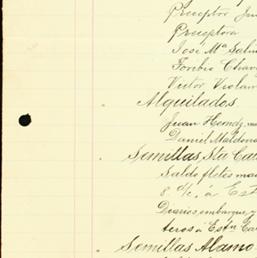 Preceptor
Preceptora
José Ma. Salin
Toribio Chav
Victor Violan
Alquilados
Juan Herndz, m
Daniel Maldona
Semillas, Sta Ca
Saldo fletes ma
8 %, á Est
Diarios, embarque y
teros á Estn Ca
Semillas Alamo